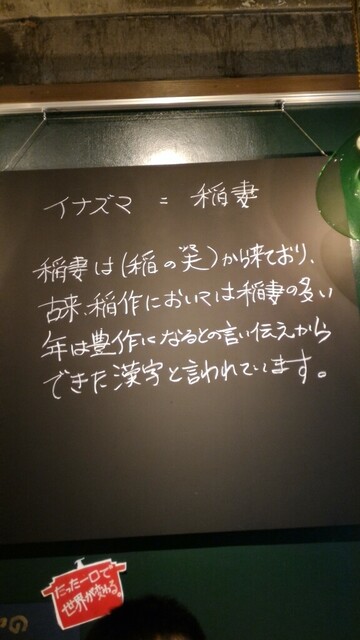 イナズマ = 稲妻
稲妻は(稲の笑)から来ており、
古来、稲作においては稲妻の多い
年は豊作になるとの言い伝えから
できた漢字と言われています。
たった一口で
世界が変わる。